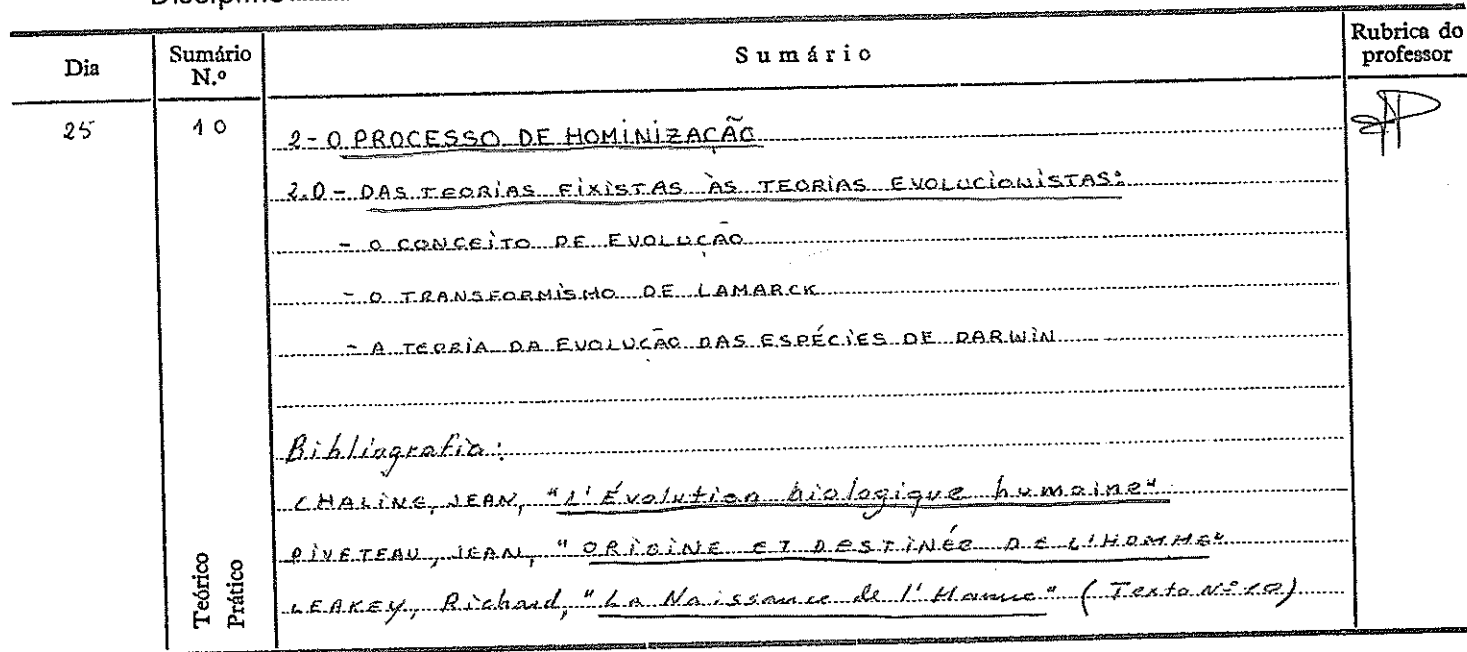 Disciplina
Dia
Sumário N.º
Sumário
Rubrica do professor
25
10
2-O PROCESSO DE HOMINIZAÇÃO
2.0- DAS TEORIAS FIXISTAS ÀS TEORIAS EVOLUCIONISTAS:
- O CONCEITO DE EVOLUÇÃO
- O TRANSFORMISMO DE LAMARCK
- A TEORIA DA EVOLUÇÃO DAS ESPÉCIES DE DARWIN
Bibliografia:
CHALINE, JEAN, "L'Évolution biologique humaine"
PIVETEAU, JEAN, "ORIGINE ET DESTINÉE DE L'HOMME"
LEAKEY, Richard, "La Naissance de l'Homme" (Texto Nº 10)
Teórico
Prático